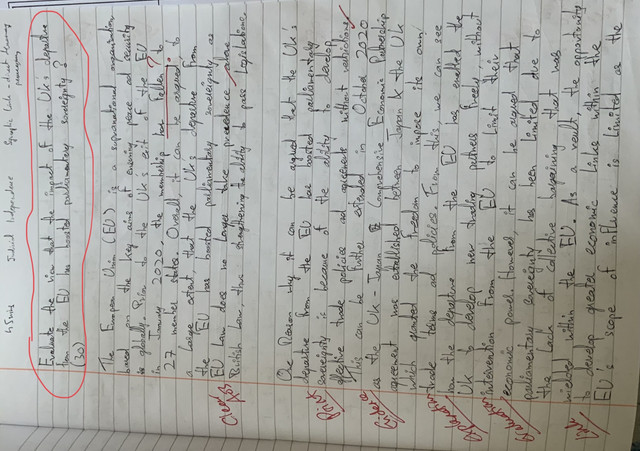 45 mins Judicial Independence Synoptic Link - direct democracy
Evaluate the view that the impact of the UK's departure
from the EU has boosted parliamentary sovereignty?
(30)
The European Union (EU) is a supranational organisation
based on the key aims of ensuring peace and security
globally. Prior to the UK's exit of the EU
in January 2020, the membership has fallen ? to
27 member states. Overall, it can be argued to
a large extent, that the UK's departure from
the EU has boosted parliamentary sovereignty as
EU law does no longer take precedence above
British law, thus strengthening the ability to pass legislations.
One Reason why it can be argued that the UK's
departure from the EU has boosted parliamentary
sovereignty is because of the ability to develop
effective trade policies and agreements without restrictions
This can be further extended in October 2020
as the UK - Japan Comprehensive Economic Partnership
agreement was established between Japan & the UK
which granted the freedom to impose its own
trade terms and policies. From this we can see
how the departure from the EU has enabled the
UK to develop new trading partners freely without
intervention from the EU to limit their
economic power. However, it can be argued that
parliamentary sovereignty has been limited due to
the lack of collective bargaining that was
wielded within the EU. As a result, the opportunity
to develop greater economic links within the
EU's scope of influence is limited as the
Point
Evidence
Explanation
Link